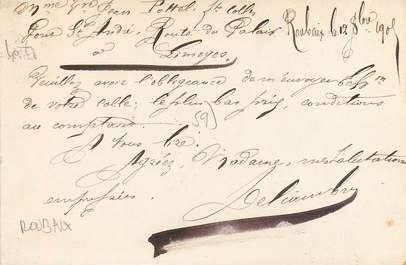 Mme Vve Jean Pottet, ft Colle
Pont St André, Route du Palais
à Limoges
Roubaix le 12 8bre 190
Veuillez avoir l'obligeance de m'envoyer
de votre colle; le plus bas prix, conditions
au comptant.
A vous lire.
Agréez, Madame, mes salutations
empressées.
Delcambre
(59)
ROUBAIX